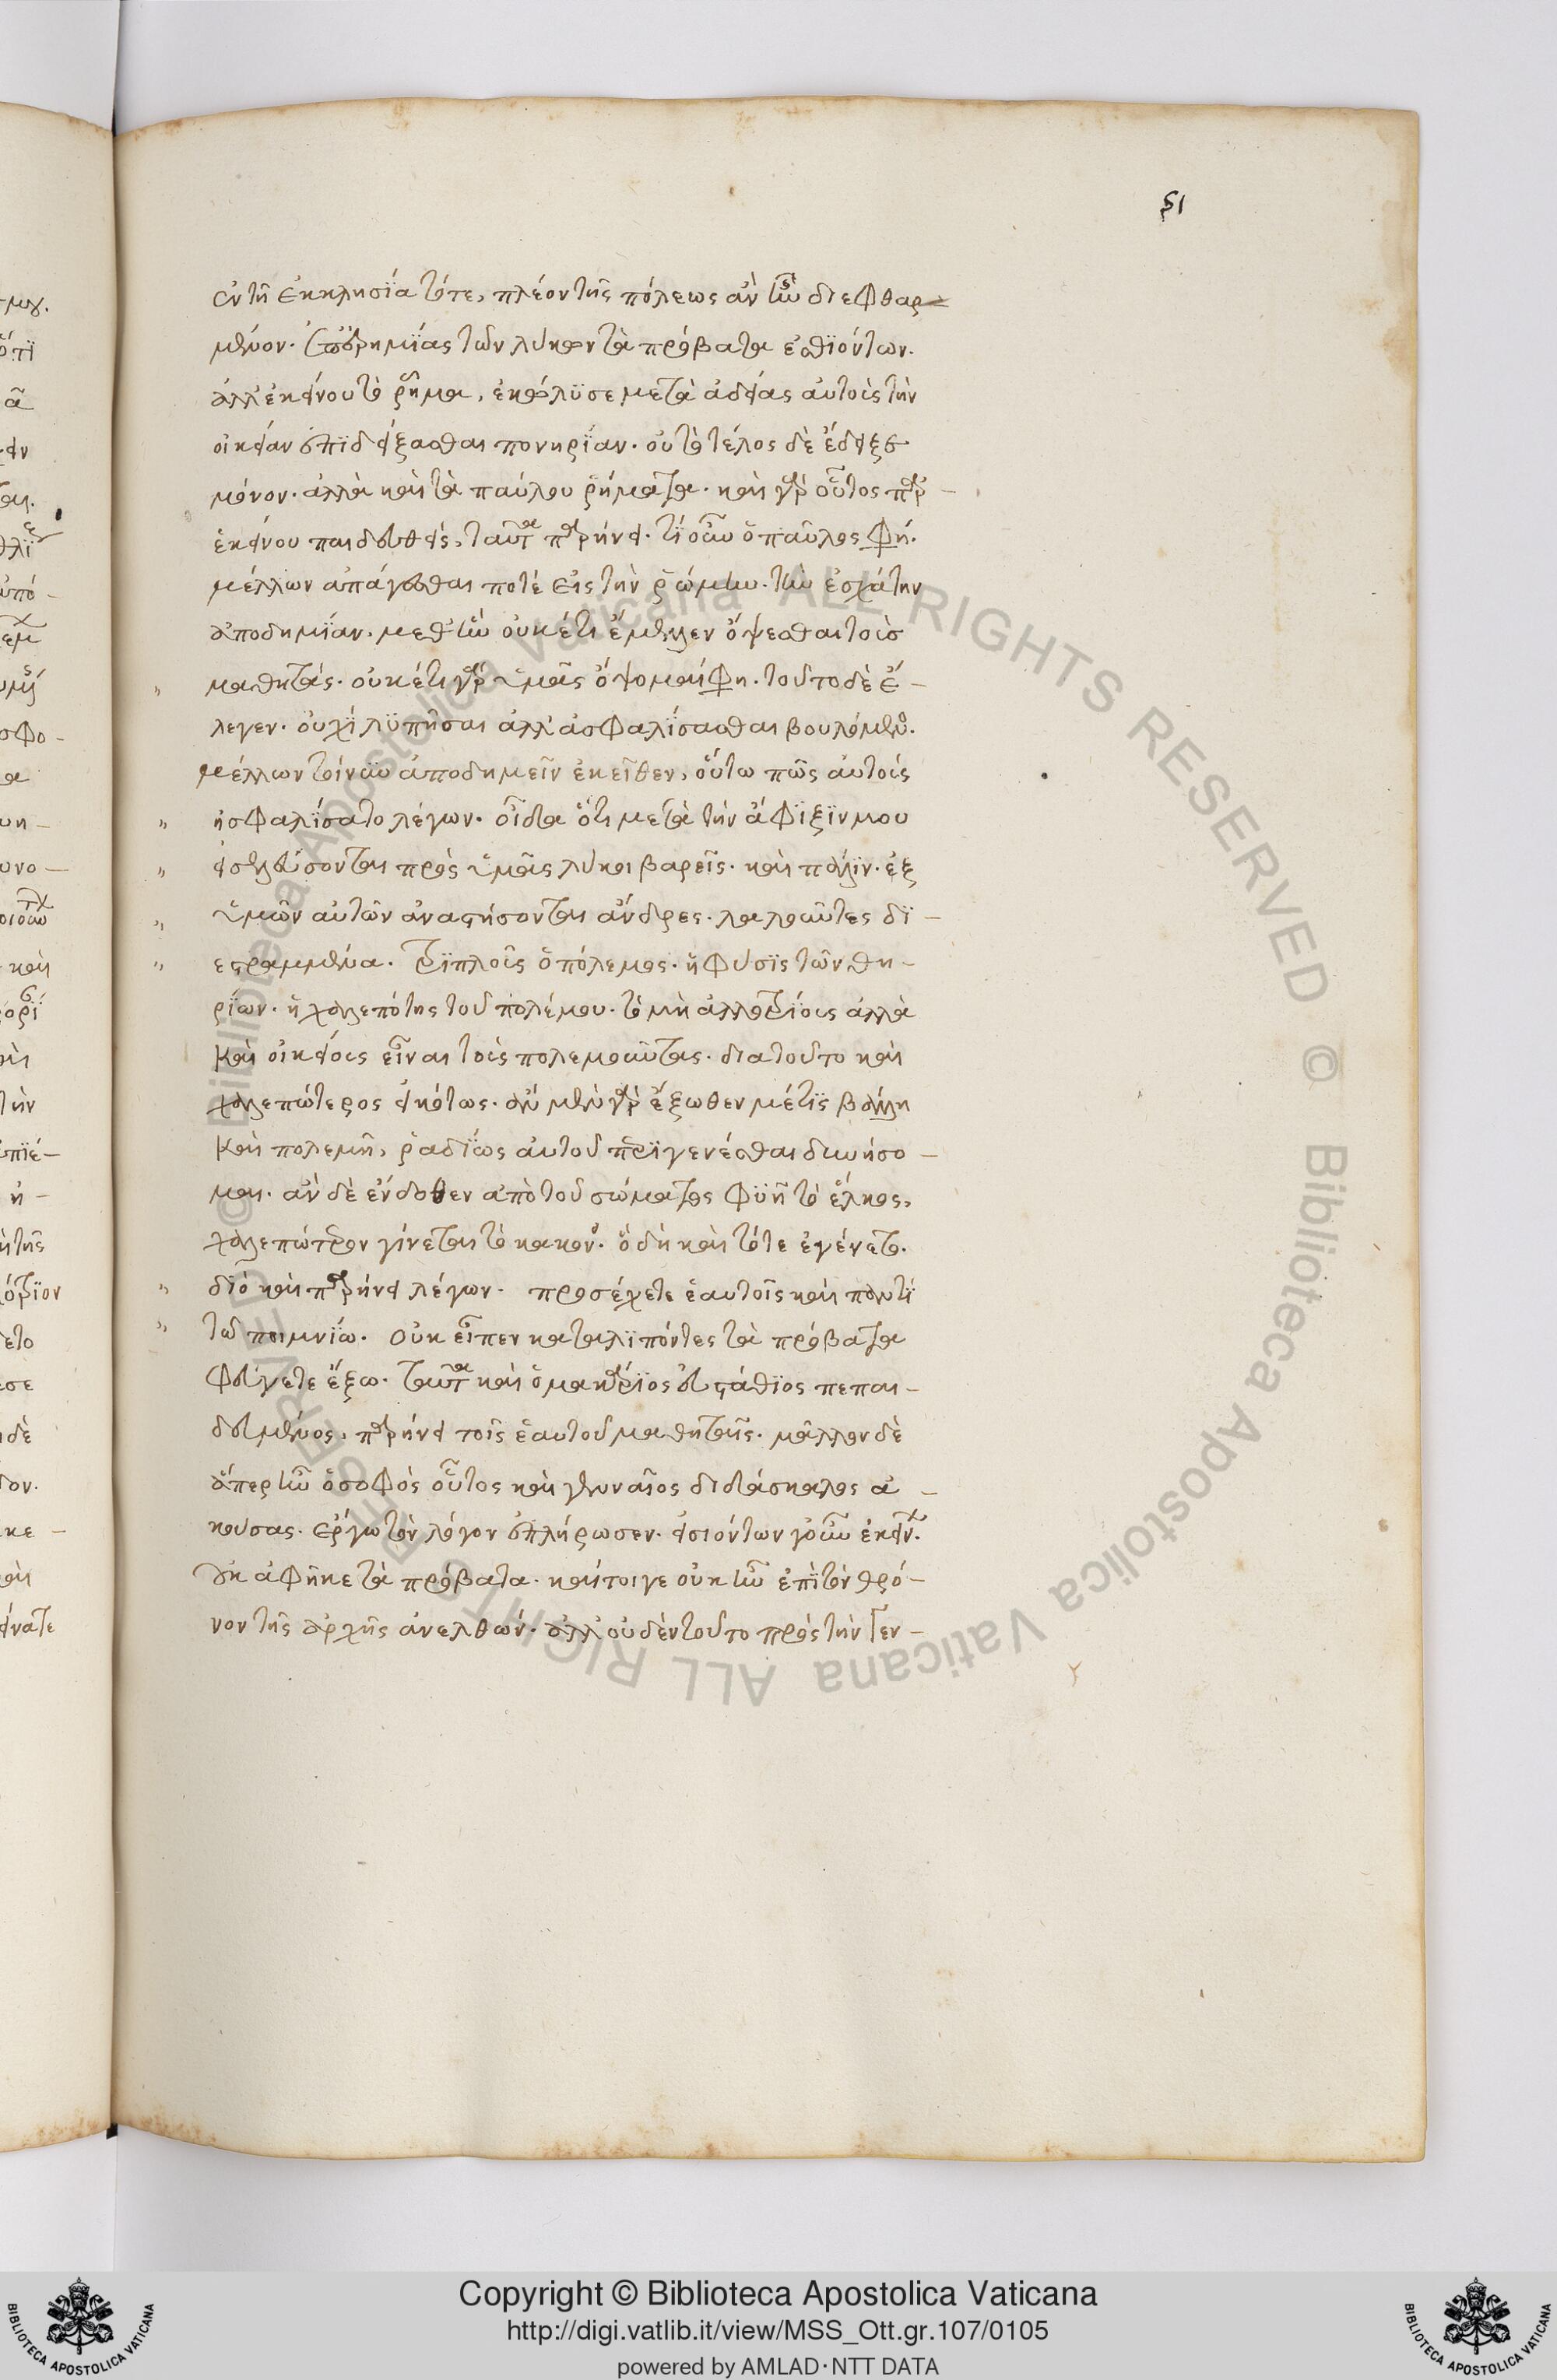 51
ἐν τῆ ἐκκλησΐα τότε, πλέον τῆς πόλεως ἂν ἦν διεφθαρ-
μένον. ἐπ᾽ ἐρημΐας τῶν λύκων τὰ πρόβατα ἐσθϊόντων.
ἀλλ᾽ ἐκείνου τὸ ῥῆμα, ἐκώλϋσε μετὰ ἀδείας αὐτοὺς τὴν
οἰκείαν ἐπϊδείξασθαι πονηρΐαν. οὐ τὸ τέλος δὲ ἔδειξε
μόνον. ἀλλὰ καὶ τὰ παύλου ῥήματα. καὶ γὰρ οὗτος παρ᾽
ἐκείνου παιδευθεὶς, ταῦτα παρήνει. τΐ οὖν ὁ παῦλος φη.
μέλλων ἀπάγεσθαι ποτὲ εἰς τὴν ῥώμην. τὴν ἐσχάτην
ἀποδημΐαν. μεθ᾽ ἣν οὐκέτι ἔμελλεν ὄψεσθαι τοὺσ
μαθητάς. οὐκέτι γὰρ ὑμᾶς ὄψομαί φη. τοῦτο δὲ ἔ-
λεγεν. οὐχῒ λϋπῆσαι ἀλλ᾽ ἀσφαλΐσασθαι βουλόμενος.
μέλλων τοίνυν ἀποδημεῖν ἐκεῖθεν, οὕτω πῶς αὐτοὺς
ἠσφαλΐσατο λέγων. οἶδα ὅτι μετὰ τὴν ἄφϊξΐν μου
εἰσελεύσονται πρὸς ὑμᾶς λύκοι βαρεῖς. καὶ πάλϊν. ἐξ
ὑμῶν αὐτῶν ἀναστήσονται ἄνδρες. λαλοῦντες δϊ-
εστραμμένα. τρϊπλοῦς ὁ πόλεμος. ἡ φύσϊς τῶν θη-
ρΐων. ἡ χαλεπότης τοῦ πολέμου. τὸ μὴ ἀλλοτρΐους ἀλλὰ
καὶ οἰκείους εἶναι τοὺς πολεμοῦντας. διατοῦτο καὶ
χαλεπώτερος εἰκότως. ἂν μὲν γὰρ ἔξωθεν μέ τϊς βάλλη
καὶ πολεμῆ, ῥαδΐως αὐτοῦ περϊγενέσθαι δυνήσο-
μαι. ἂν δὲ ἔνδοθεν ἀπὸ τοῦ σώματος φϋῆ τὸ ἕλκος,
χαλεπώτερον γίνεται τὸ κακόν. ὃ δὴ καὶ τότε ἐγένετο.
δϊὸ καὶ παρήνει λέγων. προσέχετε ἑαυτοῖς καὶ παντΐ
τῶ ποιμνΐω. οὐκ εἶπεν καταλϊπόντες τὰ πρόβατα
φεύγετε ἔξω. ταῦτα καὶ ὁ μακάρϊος εὐστάθϊος πεπαι-
δευμένος, παρήνει τοῖς ἑαυτοῦ μαθηταῖς. μᾶλλον δὲ
ἅπερ ἦν ὁ σοφὸς οὗτος καὶ γενναῖος διδάσκαλος ἀ-
κούσας. ἔργω τὸν λόγον ἐπλήρωσεν. εἰσιόντων γοῦν ἐκείνων.
οὐκ ἀφῆκε τὰ πρόβατα. καίτοιγε οὐκ ἦν ἐπῒ τὸν θρό-
νον τῆς ἀρχῆς ἀνελθών. ἀλλ᾽ οὐδὲν τοῦτο πρὸς τὴν γεν-
Copyright © Biblioteca Apostolica Vaticana
http://digi.vatlib.it/view/MSS_Ott.gr.107/0105
powered by AMLAD·NTT DATA